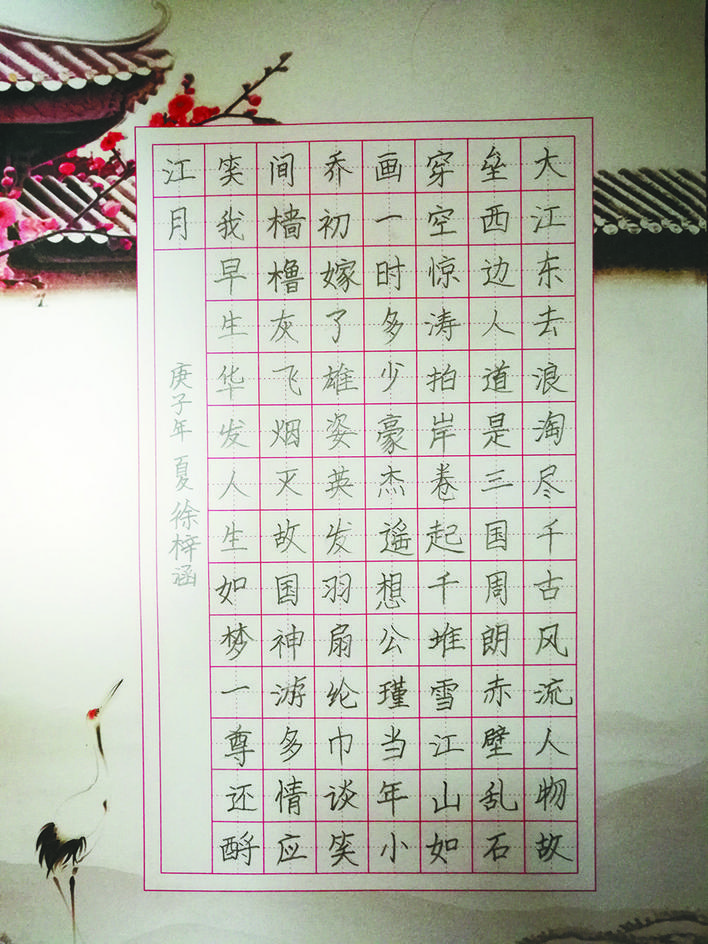 大江东去浪淘尽千古风流人物故
垒西边人道是三国周朗赤壁乱石
穿空惊涛拍岸卷起千堆雪江山如
画一时多少豪杰遥想公瑾当年小
乔初嫁了雄姿英发羽扇纶巾谈笑
间樯橹灰飞烟灭故国神游多情应
笑我早生华发人生如梦一尊还酹
江月
庚子年 夏 徐梓涵